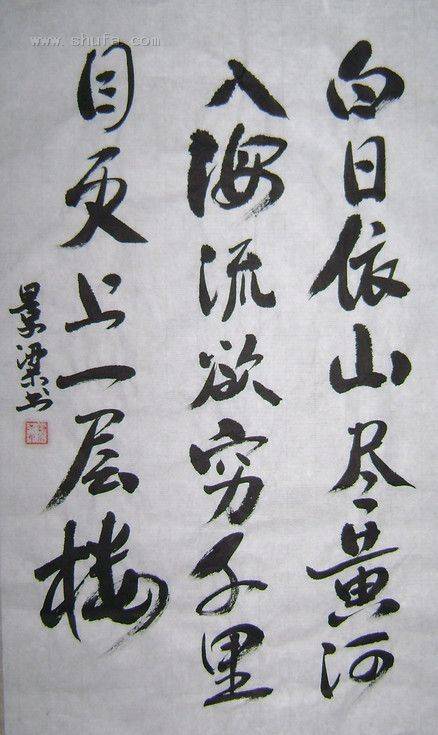 白日依山尽黄河
入海流欲穷千里
目更上一层楼
景梁书
www.shufa.com